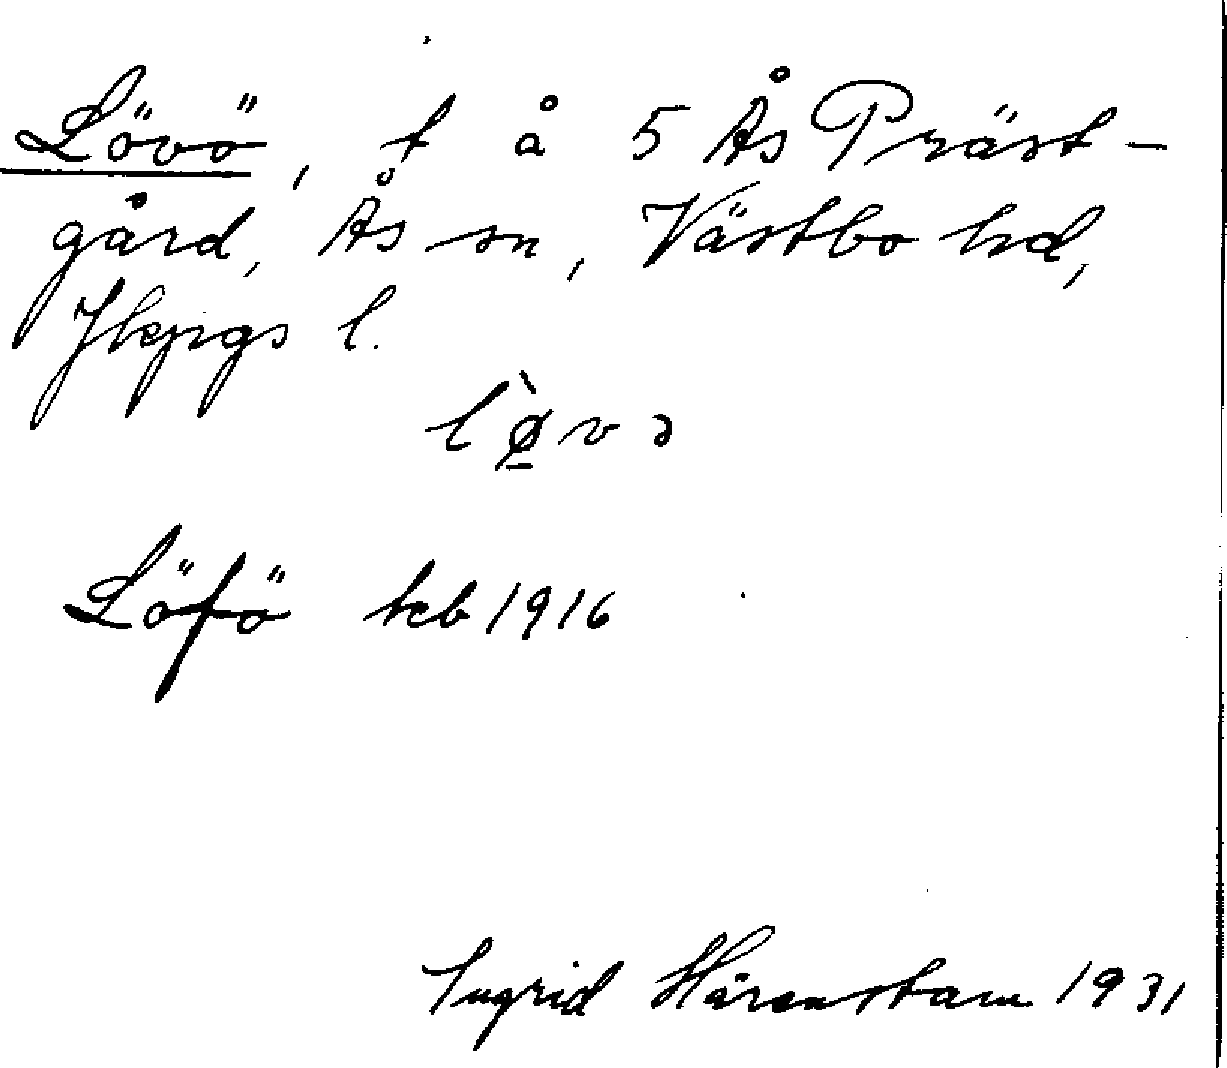 Lövö, t å 5 Ås Präst-
gård, Ås sn, Västbo hd,
Jkpgs l.
lø̠̀və
Löfö kcb 1916
Ingrid Härenstam 1931